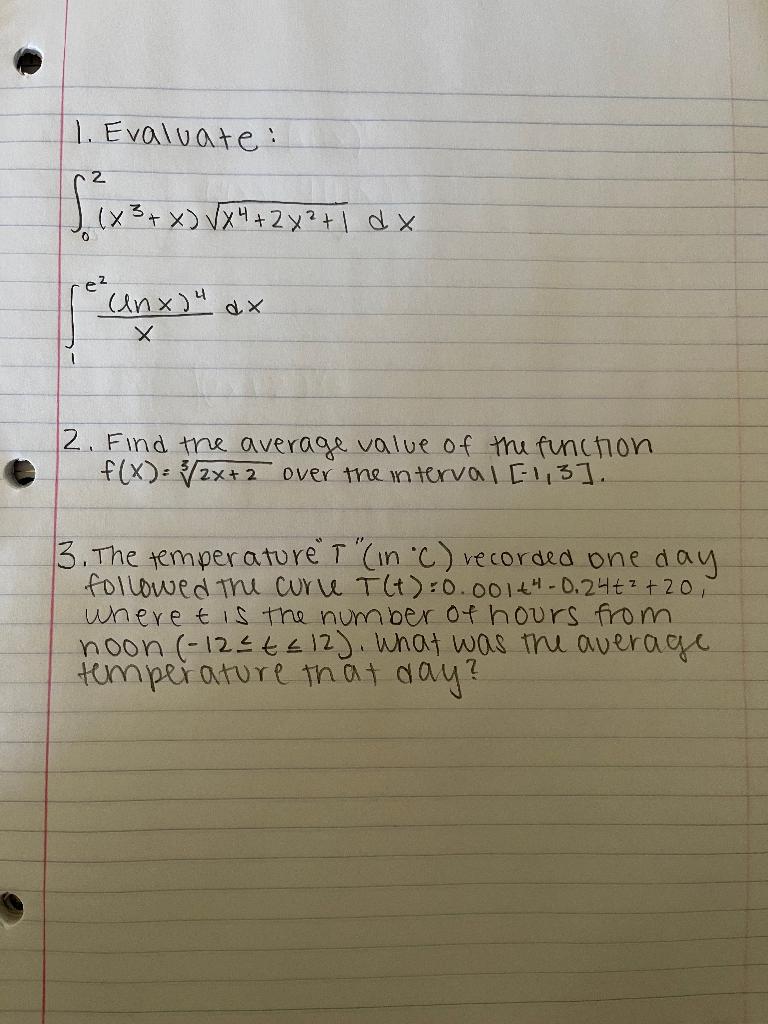 1. Evaluate:
∫₀² (x³+x)√(x⁴+2x²+1) dx
∫₁^(e²) (ln x)⁴/x dx
2. Find the average value of the function
f(x)=∛(2x+2) over the interval [-1,3].
3. The temperature "T" (in °C) recorded one day
followed the curve T(t)=0.001t⁴-0.24t²+20,
where t is the number of hours from
noon (-12≤t≤12). What was the average
temperature that day?